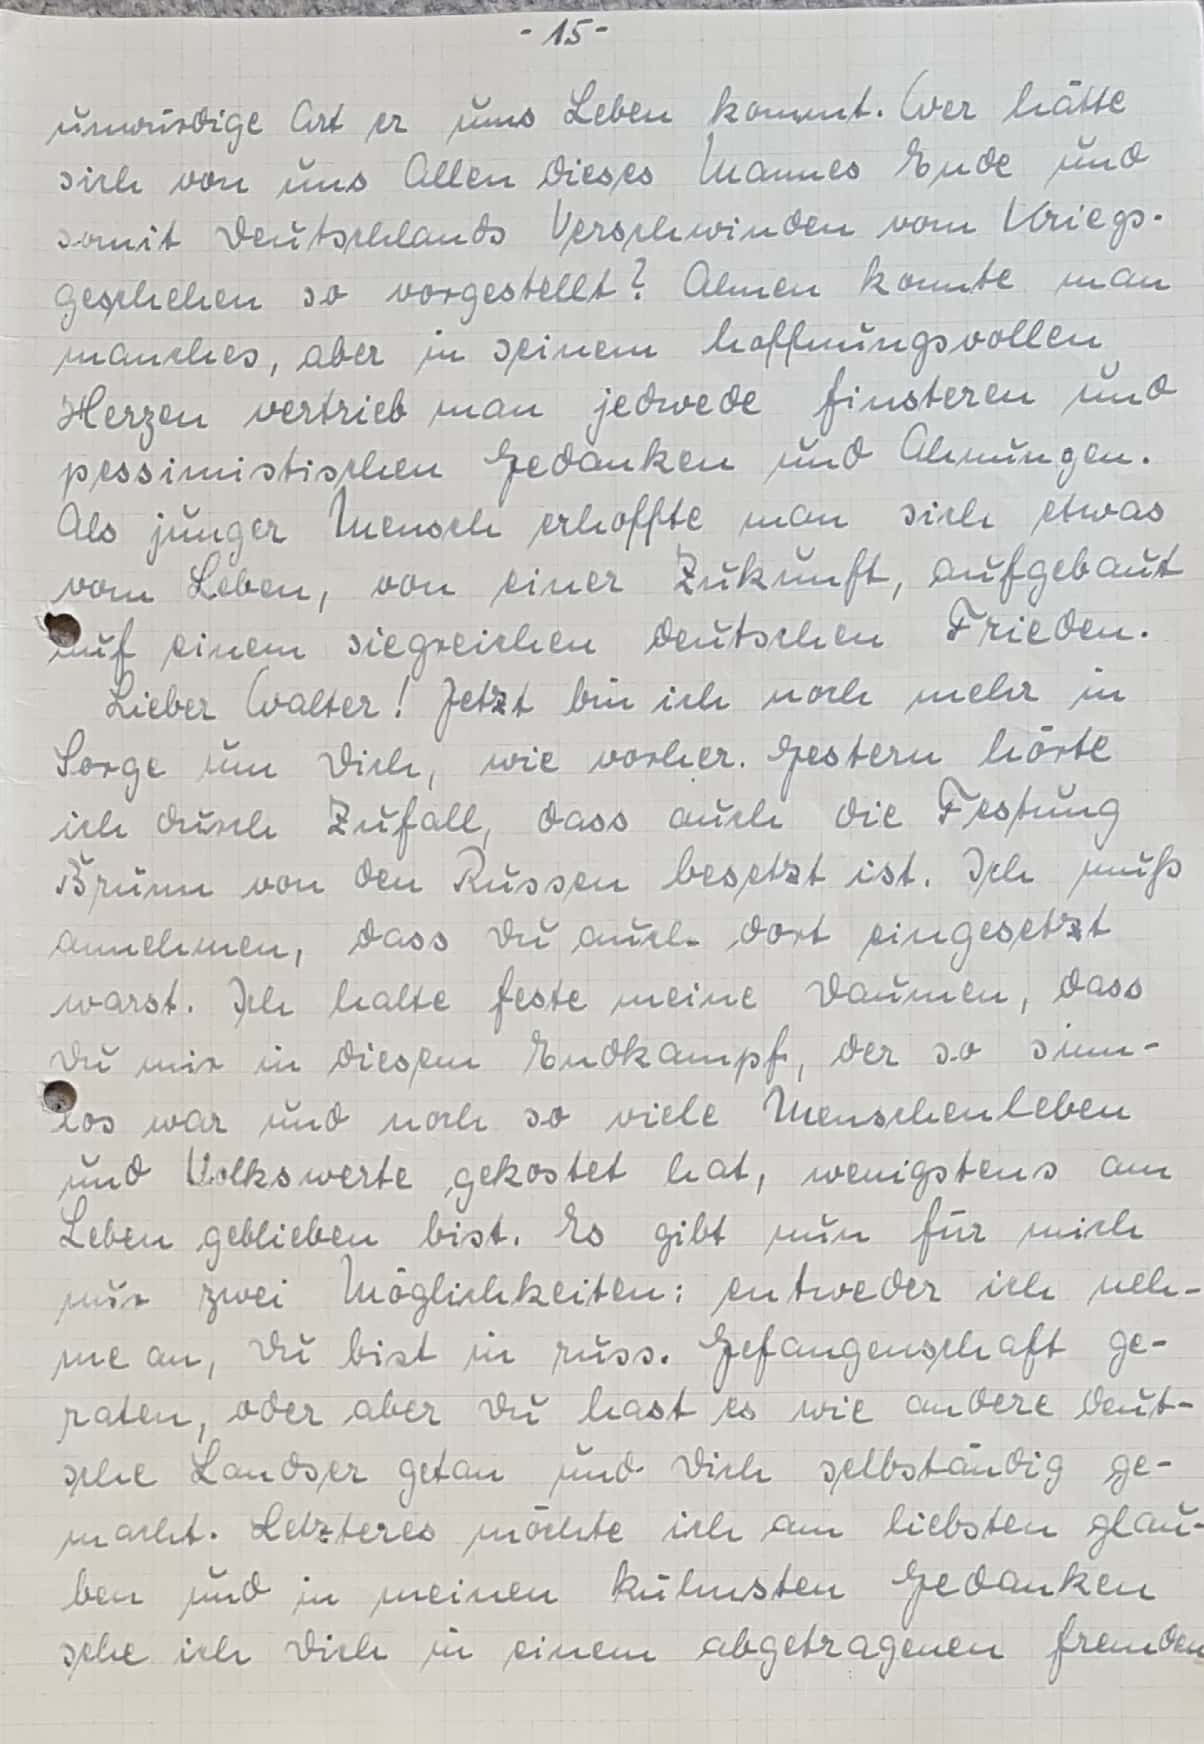 - 15 -
unwürdige Art er ums Leben kommt. Wer hätte
sich von uns Allen dieses Mannes Ende und
somit Deutschlands Verschwinden vom Kriegs-
geschehen so vorgestellt? Ahnen konnte man
manches, aber in seinem hoffnungsvollen
Herzen vertrieb man jedwede finsteren und
pessimistischen Gedanken und Ahnungen.
Als junger Mensch erhoffte man sich etwas
vom Leben, von einer Zukunft, aufgebaut
auf einem siegreichen deutschen Frieden.
Lieber Walter! Jetzt bin ich noch mehr in
Sorge um Dich, wie vorher. Gestern hörte
ich durch Zufall, dass auch die Festung
Brünn von den Russen besetzt ist. Ich muß
annehmen, dass Du auch dort eingesetzt
warst. Ich halte feste meine Daumen, dass
Du mir in diesem Endkampf, der so sinn-
los war und noch so viele Menschenleben
und Volkswerte gekostet hat, wenigstens am
Leben geblieben bist. Es gibt nun für mich
nur zwei Möglichkeiten: entweder ich neh-
me an, Du bist in russ. Gefangenschaft ge-
raten, oder aber Du hast es wie andere deut-
sche Landser getan und Dich selbständig ge-
macht. Letzteres möchte ich am liebsten glau-
ben und in meinen kühnsten Gedanken
sehe ich Dich in einem abgetragenen fremden